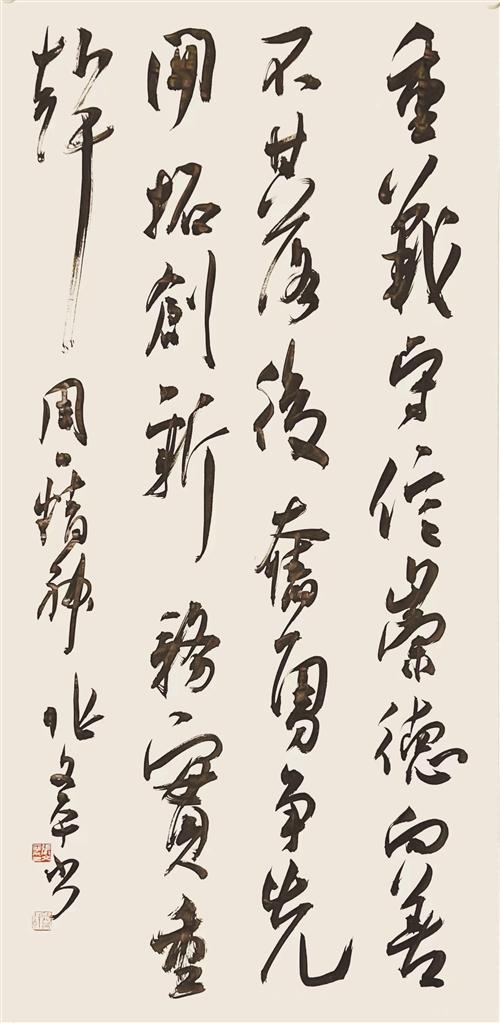 重義守信崇德向善
不甘落後奮勇争先
開拓創新務實重
幹
周口精神 書